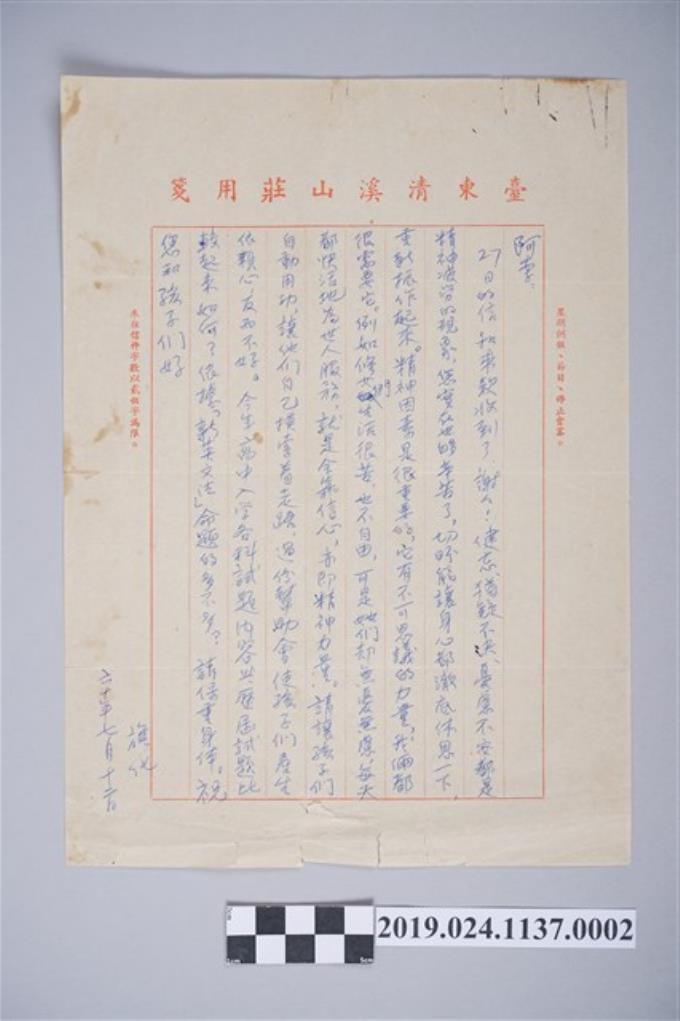 臺東清溪山莊用箋
星期例假、節日、停止會客。
阿李:
27日的信和来款收到了,謝々!健忘、猶疑不決、憂慮不安都是
精神疲勞的現象,您實在也夠辛苦了,切盼能讓身心都澈底休息一下,
重新振作起來。精神因素是很重要的,它有不可思議的力量,我倆都
很需要它。例如修女們生活很苦,也不自由,可是她們却無憂無慮,每天
都快活地為世人服務,就是全靠信心,亦即精神力量。請讓孩子們
自動用功,讓他們自己摸索着走路,過份幫助會使孩子們產生
依賴心反而不好。今年高中入学各科試題内容與歷屆試題比
較起來如何?依據「新英文法」命題的多不多?請保重身体。祝
您和孩子們好
旗化
六十年七月十二日
來往信件字數以貳佰字為限。
2019.024.1137.0002
1cm
5cm